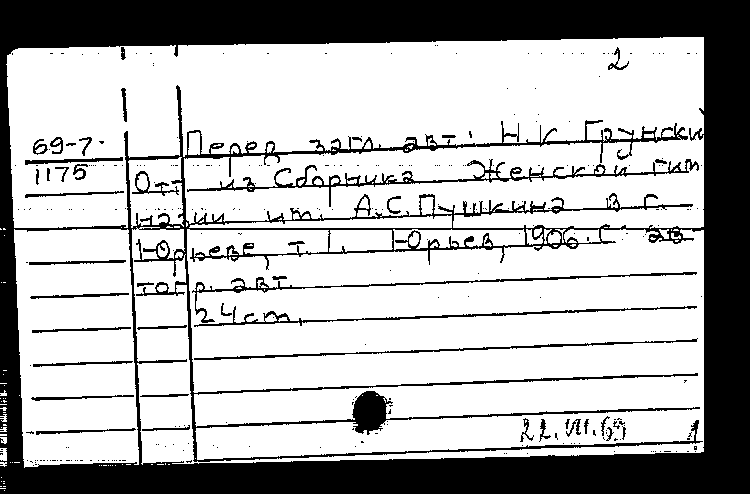 2
69-7. Перед загл. авт.: Н.К Грунский
1175 Отт из Сборника Женской гим
назии им. А.С.Пушкина в г.
Юрьеве, т. 1. Юрьев, 1906. С ав-
тогр. авт.
24cm.
22.VII.69 1